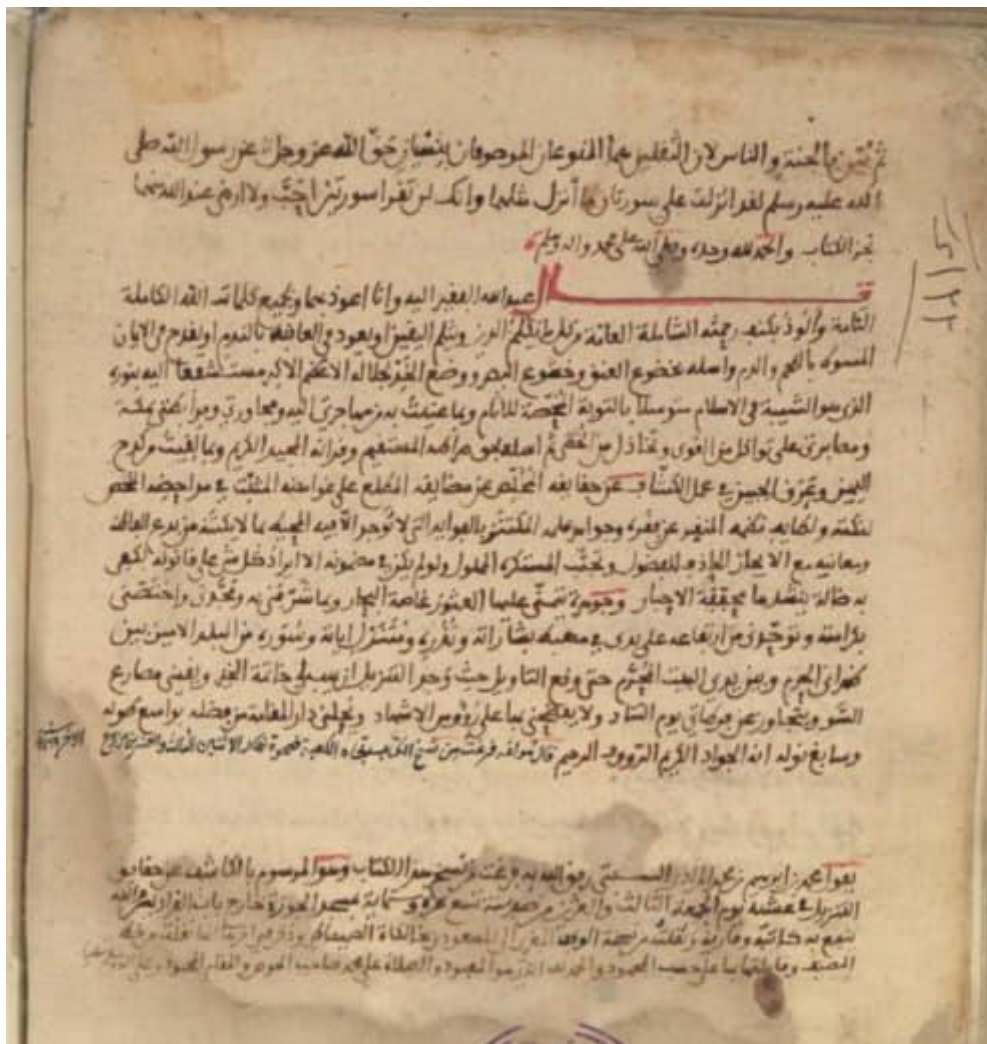 ثم بين بالجنة والناس لأن الثقلين هما النوعان الموصوفان بنسيان حق الله عز وجل عن رسول الله صلى
الله عليه وسلم لقد أنزلت علي سورتان ما أنزل مثلهما وإنك لن تقرأ سورتين أحب ولا أرضى عند الله منهما
نجز الكتاب والحمد لله وحده وصلى الله على محمد وآله وسلم
قال عبد الله الفقير إليه وأنا أعوذ بهما وبجميع كلمات الله الكاملة
التامة وألوذ بكنف رحمته الشاملة العامة من كل ما يكلم الدين ويثلم اليقين أو يعود في العاقبة بالندم أو يقدح في الإيمان
المسوط باللحم والدم وأسأله بخضوع العنق وخشوع البصر ووضع الخد لجلاله الأعظم الأكبر مستشفعا إليه بنوره
الذي هو الشيبة في الإسلام متوسلا بالتوبة الممحصة للآثام وبما عنيت به من مهاجرتي إليه ومجاورتي ومرابطتي بمكة
ومصابرتي على تواكل من القوى وتخاذل من الخطى ثم أسأله بحق صراطه المستقيم وقرآنه المجيد الكريم وبما لقيت من كدح
اليمين وعرق الجبين في عمل الكشاف عن حقائقه المخلص عن مضايقه المطلع على غوامضه المثبت في مداحضه الملخص
لنكته ولطائف نظمه المنقر عن فقره وجواهر علمه المكتنز بالفوائد التي لا توجد إلا فيه المحيط بما لا يكتنه من بدع ألفاظه
ومعانيه مع الإيجاز الحاذف للفضول وتجنب المستكره المملول ولو لم يكن في مضمونه إلا إيراد كل شيء على قانونه لكفى
به ضالة ينشدها محققة الأحبار وجوهرة يتمنى العثور عليها غاصة البحار وبما شرفني به ومجدني واختصني
بكرامته وتوحدني من ارتفاعه على يدي في مهبط بشاراته ونذره ومتنزل آياته وسوره من البلد الأمين بين
ظهراني الحرم وبين يدي البيت المحرم حتى وقع التأويل حيث وجد التنزيل أن يهب لي خاتمة الخير ويقيني مصارع
السوء ويتجاوز عن فرطاتي يوم التناد ولا يفضحني بها على رؤوس الأشهاد ويحلني دار المقامة من فضله بواسع طوله
وسابغ نوله إنه الجواد الكريم الرؤوف الرحيم قال مؤلفه فرغت من
الكعبة ضحوة الاثنين الثالث والعشرين
محمد بن
فرغت من نسخ هذا الكتاب وهو الموسوم بالكاشف عن حقائق
التنزيل في عشية يوم الجمعة الثالث والعشرين من صفر سنة تسع عشرة وستماية
نفع الله به كاتبه وقارئه ونقلته من نسخة
والحمد لله والصلاة على محمد صاحب الحوض والمقام المحمود